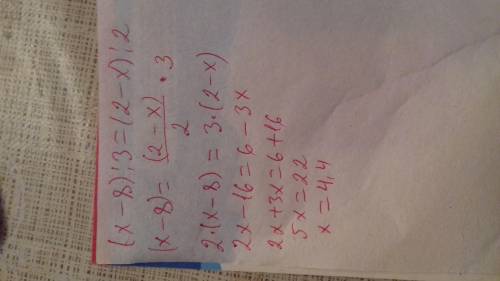 (x-8):3=(2-x):2
(x-8)=(2-x)/2·3
2·(x-8)=3·(2-x)
2x-16=6-3x
2x+3x=6+16
5x=22
x=4,4